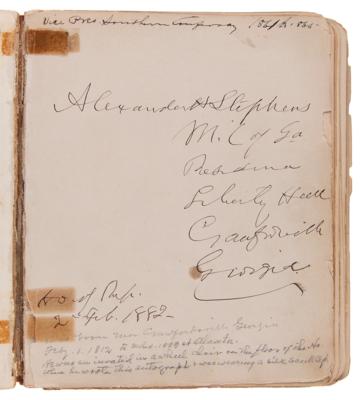 Vice Pres Southern Confederacy 1861 to 1865.
Alexander H Stephens
M. C of Ga
Residence
Liberty Hall
Crawfordville
Georgia
Ho. of Rep.
2d Feb. 1882
born near Crawfordville Georgia
Feby. 1. 1812 to Mch. 1883 at Atlanta.
He was an invalid in a wheel chair on the floor of the Ho
when he wrote this autograph & was wearing a silk